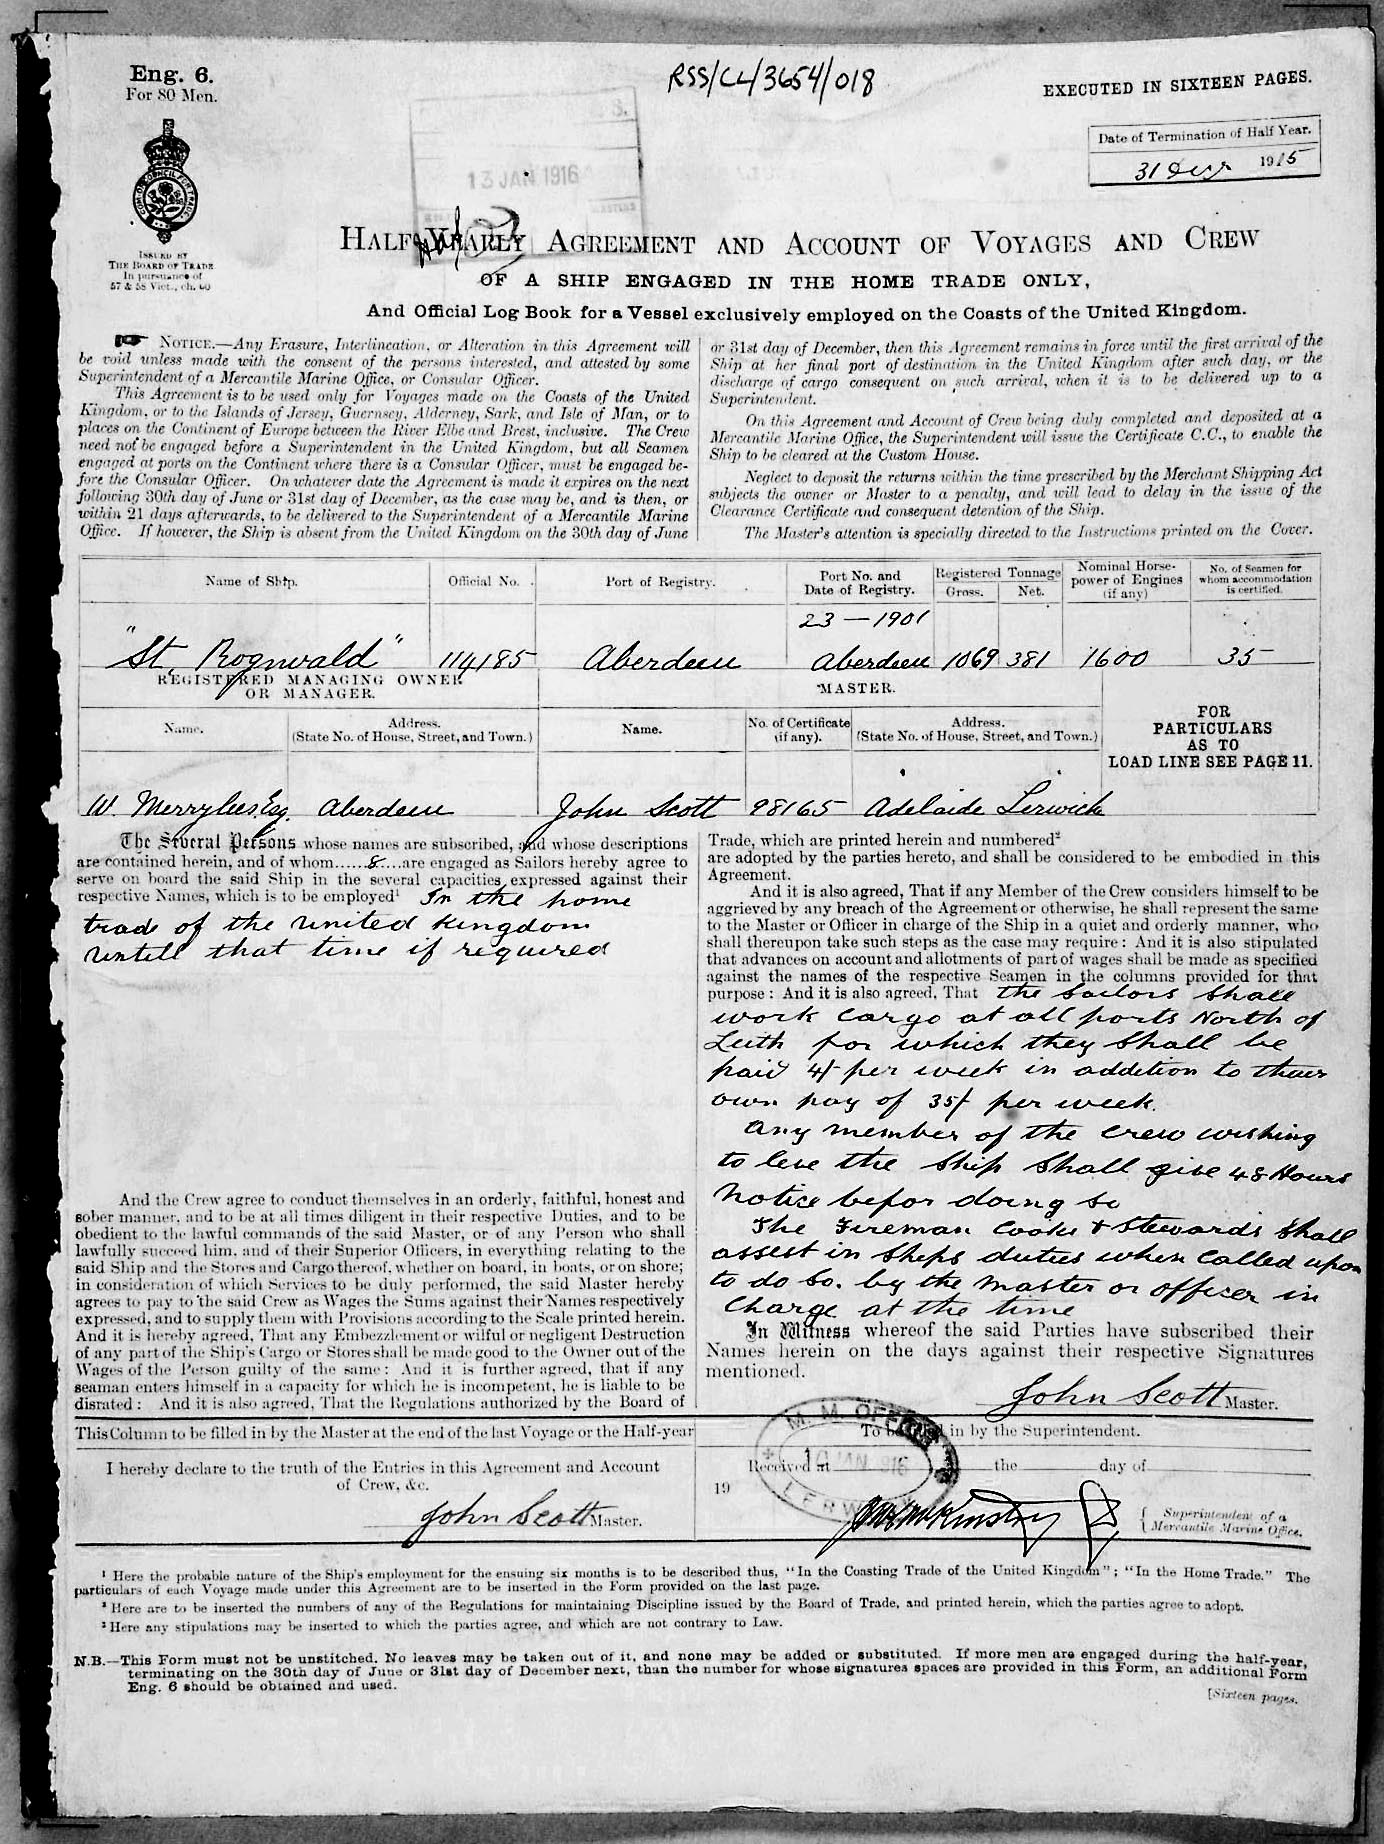 Eng. 6.
For 80 Men.
RSS/CL/3654/018
EXECUTED IN SIXTEEN PAGES.
Date of Termination of Half Year.
31 Dec 1915
13 JAN 1916
ISSUED BY
THE BOARD OF TRADE
In pursuance of
57 & 58 Vict., ch. 60
HALF-YEARLY AGREEMENT AND ACCOUNT OF VOYAGES AND CREW
OF A SHIP ENGAGED IN THE HOME TRADE ONLY,
And Official Log Book for a Vessel exclusively employed on the Coasts of the United Kingdom.
NOTICE.—Any Erasure, Interlineation, or Alteration in this Agreement will
be void unless made with the consent of the persons interested, and attested by some
Superintendent of a Mercantile Marine Office, or Consular Officer.
This Agreement is to be used only for Voyages made on the Coasts of the United
Kingdom, or to the Islands of Jersey, Guernsey, Alderney, Sark, and Isle of Man, or to
places on the Continent of Europe between the River Elbe and Brest, inclusive. The Crew
need not be engaged before a Superintendent in the United Kingdom, but all Seamen
engaged at ports on the Continent where there is a Consular Officer, must be engaged be-
fore the Consular Officer. On whatever date the Agreement is made it expires on the next
following 30th day of June or 31st day of December, as the case may be, and is then, or
within 21 days afterwards, to be delivered to the Superintendent of a Mercantile Marine
Office. If however, the Ship is absent from the United Kingdom on the 30th day of June
or 31st day of December, then this Agreement remains in force until the first arrival of the
Ship at her final port of destination in the United Kingdom after such day, or the
discharge of cargo consequent on such arrival, when it is to be delivered up to a
Superintendent.
On this Agreement and Account of Crew being duly completed and deposited at a
Mercantile Marine Office, the Superintendent will issue the Certificate C.C., to enable the
Ship to be cleared at the Custom House.
Neglect to deposit the returns within the time prescribed by the Merchant Shipping Act
subjects the owner or Master to a penalty, and will lead to delay in the issue of the
Clearance Certificate and consequent detention of the Ship.
The Master's attention is specially directed to the Instructions printed on the Cover.
Name of Ship. Official No. Port of Registry. Port No. and Date of Registry. Registered Tonnage Gross. Net. Nominal Horse-power of Engines (if any) No. of Seamen for whom accommodation is certified.
23 — 1901
"St. Rognvald" 114185 Aberdeen Aberdeen 1069 381 1600 35
REGISTERED MANAGING OWNER
OR MANAGER.
MASTER.
FOR
PARTICULARS
AS TO
LOAD LINE SEE PAGE 11.
Name. Address. (State No. of House, Street, and Town.) Name. No. of Certificate (if any). Address. (State No. of House, Street, and Town.)
W. Merrylees Esq. Aberdeen John Scott 98165 Adelaide Lerwick
The Several Persons whose names are subscribed, and whose descriptions
are contained herein, and of whom.....8....are engaged as Sailors hereby agree to
serve on board the said Ship in the several capacities expressed against their
respective Names, which is to be employed¹ In the home
trade of the United Kingdom
untill that time if required
And the Crew agree to conduct themselves in an orderly, faithful, honest and
sober manner, and to be at all times diligent in their respective Duties, and to be
obedient to the lawful commands of the said Master, or of any Person who shall
lawfully succeed him, and of their Superior Officers, in everything relating to the
said Ship and the Stores and Cargo thereof, whether on board, in boats, or on shore;
in consideration of which Services to be duly performed, the said Master hereby
agrees to pay to the said Crew as Wages the Sums against their Names respectively
expressed, and to supply them with Provisions according to the Scale printed herein.
And it is hereby agreed, That any Embezzlement or wilful or negligent Destruction
of any part of the Ship's Cargo or Stores shall be made good to the Owner out of the
Wages of the Person guilty of the same: And it is further agreed, that if any
seaman enters himself in a capacity for which he is incompetent, he is liable to be
disrated: And it is also agreed, That the Regulations authorized by the Board of
Trade, which are printed herein and numbered²
are adopted by the parties hereto, and shall be considered to be embodied in this
Agreement.
And it is also agreed, That if any Member of the Crew considers himself to be
aggrieved by any breach of the Agreement or otherwise, he shall represent the same
to the Master or Officer in charge of the Ship in a quiet and orderly manner, who
shall thereupon take such steps as the case may require: And it is also stipulated
that advances on account and allotments of part of wages shall be made as specified
against the names of the respective Seamen in the columns provided for that
purpose: And it is also agreed, That the Sailors shall
work cargo at all ports North of
Leith for which they shall be
paid 4/- per week in addetion to their
own pay of 35/ per week.
any member of the crew wishing
to leve the ship shall give 48 Hours
notice befor doing so
The Fireman Cooks & Stewards shall
assest in ships duties when called upon
to do so. by the master or officer in
charge at the time
In Witness whereof the said Parties have subscribed their
Names herein on the days against their respective Signatures
mentioned.
John Scott Master.
This Column to be filled in by the Master at the end of the last Voyage or the Half-year
I hereby declare to the truth of the Entries in this Agreement and Account
of Crew, &c.
John Scott Master.
To be filled in by the Superintendent.
Received at the day of
19
M. M. OFFICE
10 JAN 916
LERWICK
Superintendent of a
Mercantile Marine Office.
¹ Here the probable nature of the Ship's employment for the ensuing six months is to be described thus, "In the Coasting Trade of the United Kingdom"; "In the Home Trade." The
particulars of each Voyage made under this Agreement are to be inserted in the Form provided on the last page.
² Here are to be inserted the numbers of any of the Regulations for maintaining Discipline issued by the Board of Trade, and printed herein, which the parties agree to adopt.
³ Here any stipulations may be inserted to which the parties agree, and which are not contrary to Law.
N.B.—This Form must not be unstitched. No leaves may be taken out of it, and none may be added or substituted. If more men are engaged during the half-year,
terminating on the 30th day of June or 31st day of December next, than the number for whose signatures spaces are provided in this Form, an additional Form
Eng. 6 should be obtained and used.
[Sixteen pages.